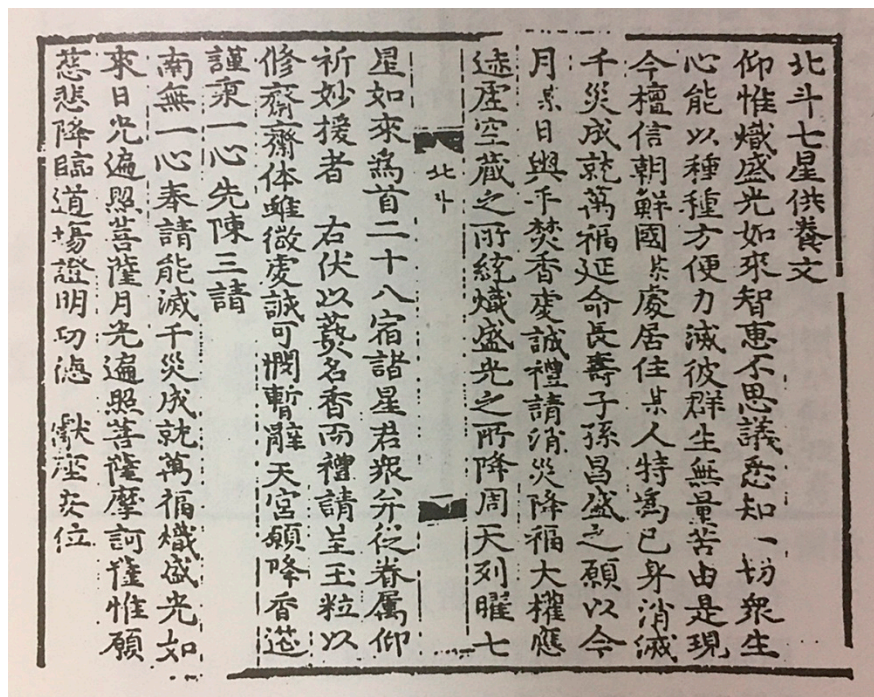 北斗七星供養文
仰惟熾盛光如來智惠不思議悉知一切衆生
心能以種種方便力滅彼群生無量苦由是現
今檀信朝鮮國某處居住某人特爲已身消滅
千災成就萬福延命長壽子孫昌盛之願以今
月某日與手焚香虔誠禮請消災降福大權應
迹虛空藏之所統熾盛光之所降周天列曜七
北斗 一
星如來爲首二十八宿諸星君衆并從眷屬仰
祈妙援者 右伏以爇名香而禮請呈玉粒以
修齋齋体雖微虔誠可憫暫辭天宮願降香筵
謹秉一心先陳三請
南無一心奉請能滅千災成就萬福熾盛光如
來日光遍照菩薩月光遍照菩薩摩訶薩惟願
慈悲降臨道場證明功德 獻座安位